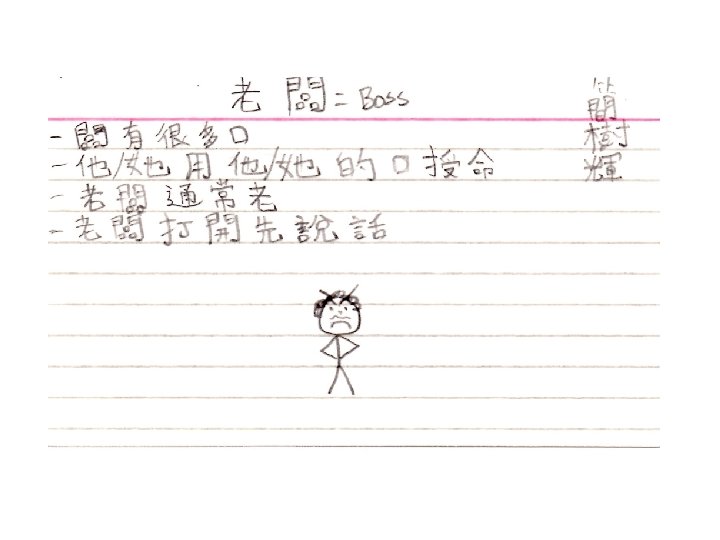 老闆=Boss
簡樹輝
-闆有很多口
-他/她用他/她的口授命
-老闆通常老
-老闆打開先說話